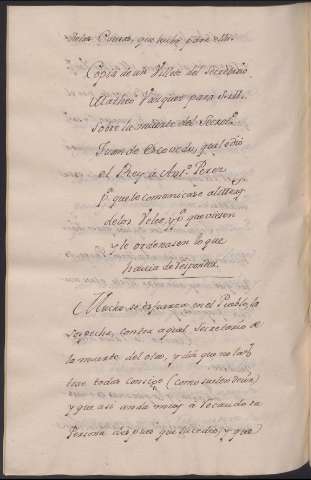 de las Causas, que hubo sobre ello.
Copia de un Villete del Secretario
Matheo Vazquez para S. M.
sobre la muerte del Secret.º
Juan de Escovedo, que dió
el Rey à Ant.º Perez
p.ª que lo comunicase al Marq.
de los Velez, y p.ª que viesen
y le ordenasen lo que
havia de responder.
Mucho se esfuerza en el Pueblo, la
sospecha, contra aquel Secretario de
la muerte del otro, y dià que no la
trae todas consigo (como suelen decir)
y que asi anda muy à recaudo su
Persona despues que sucedio, y que